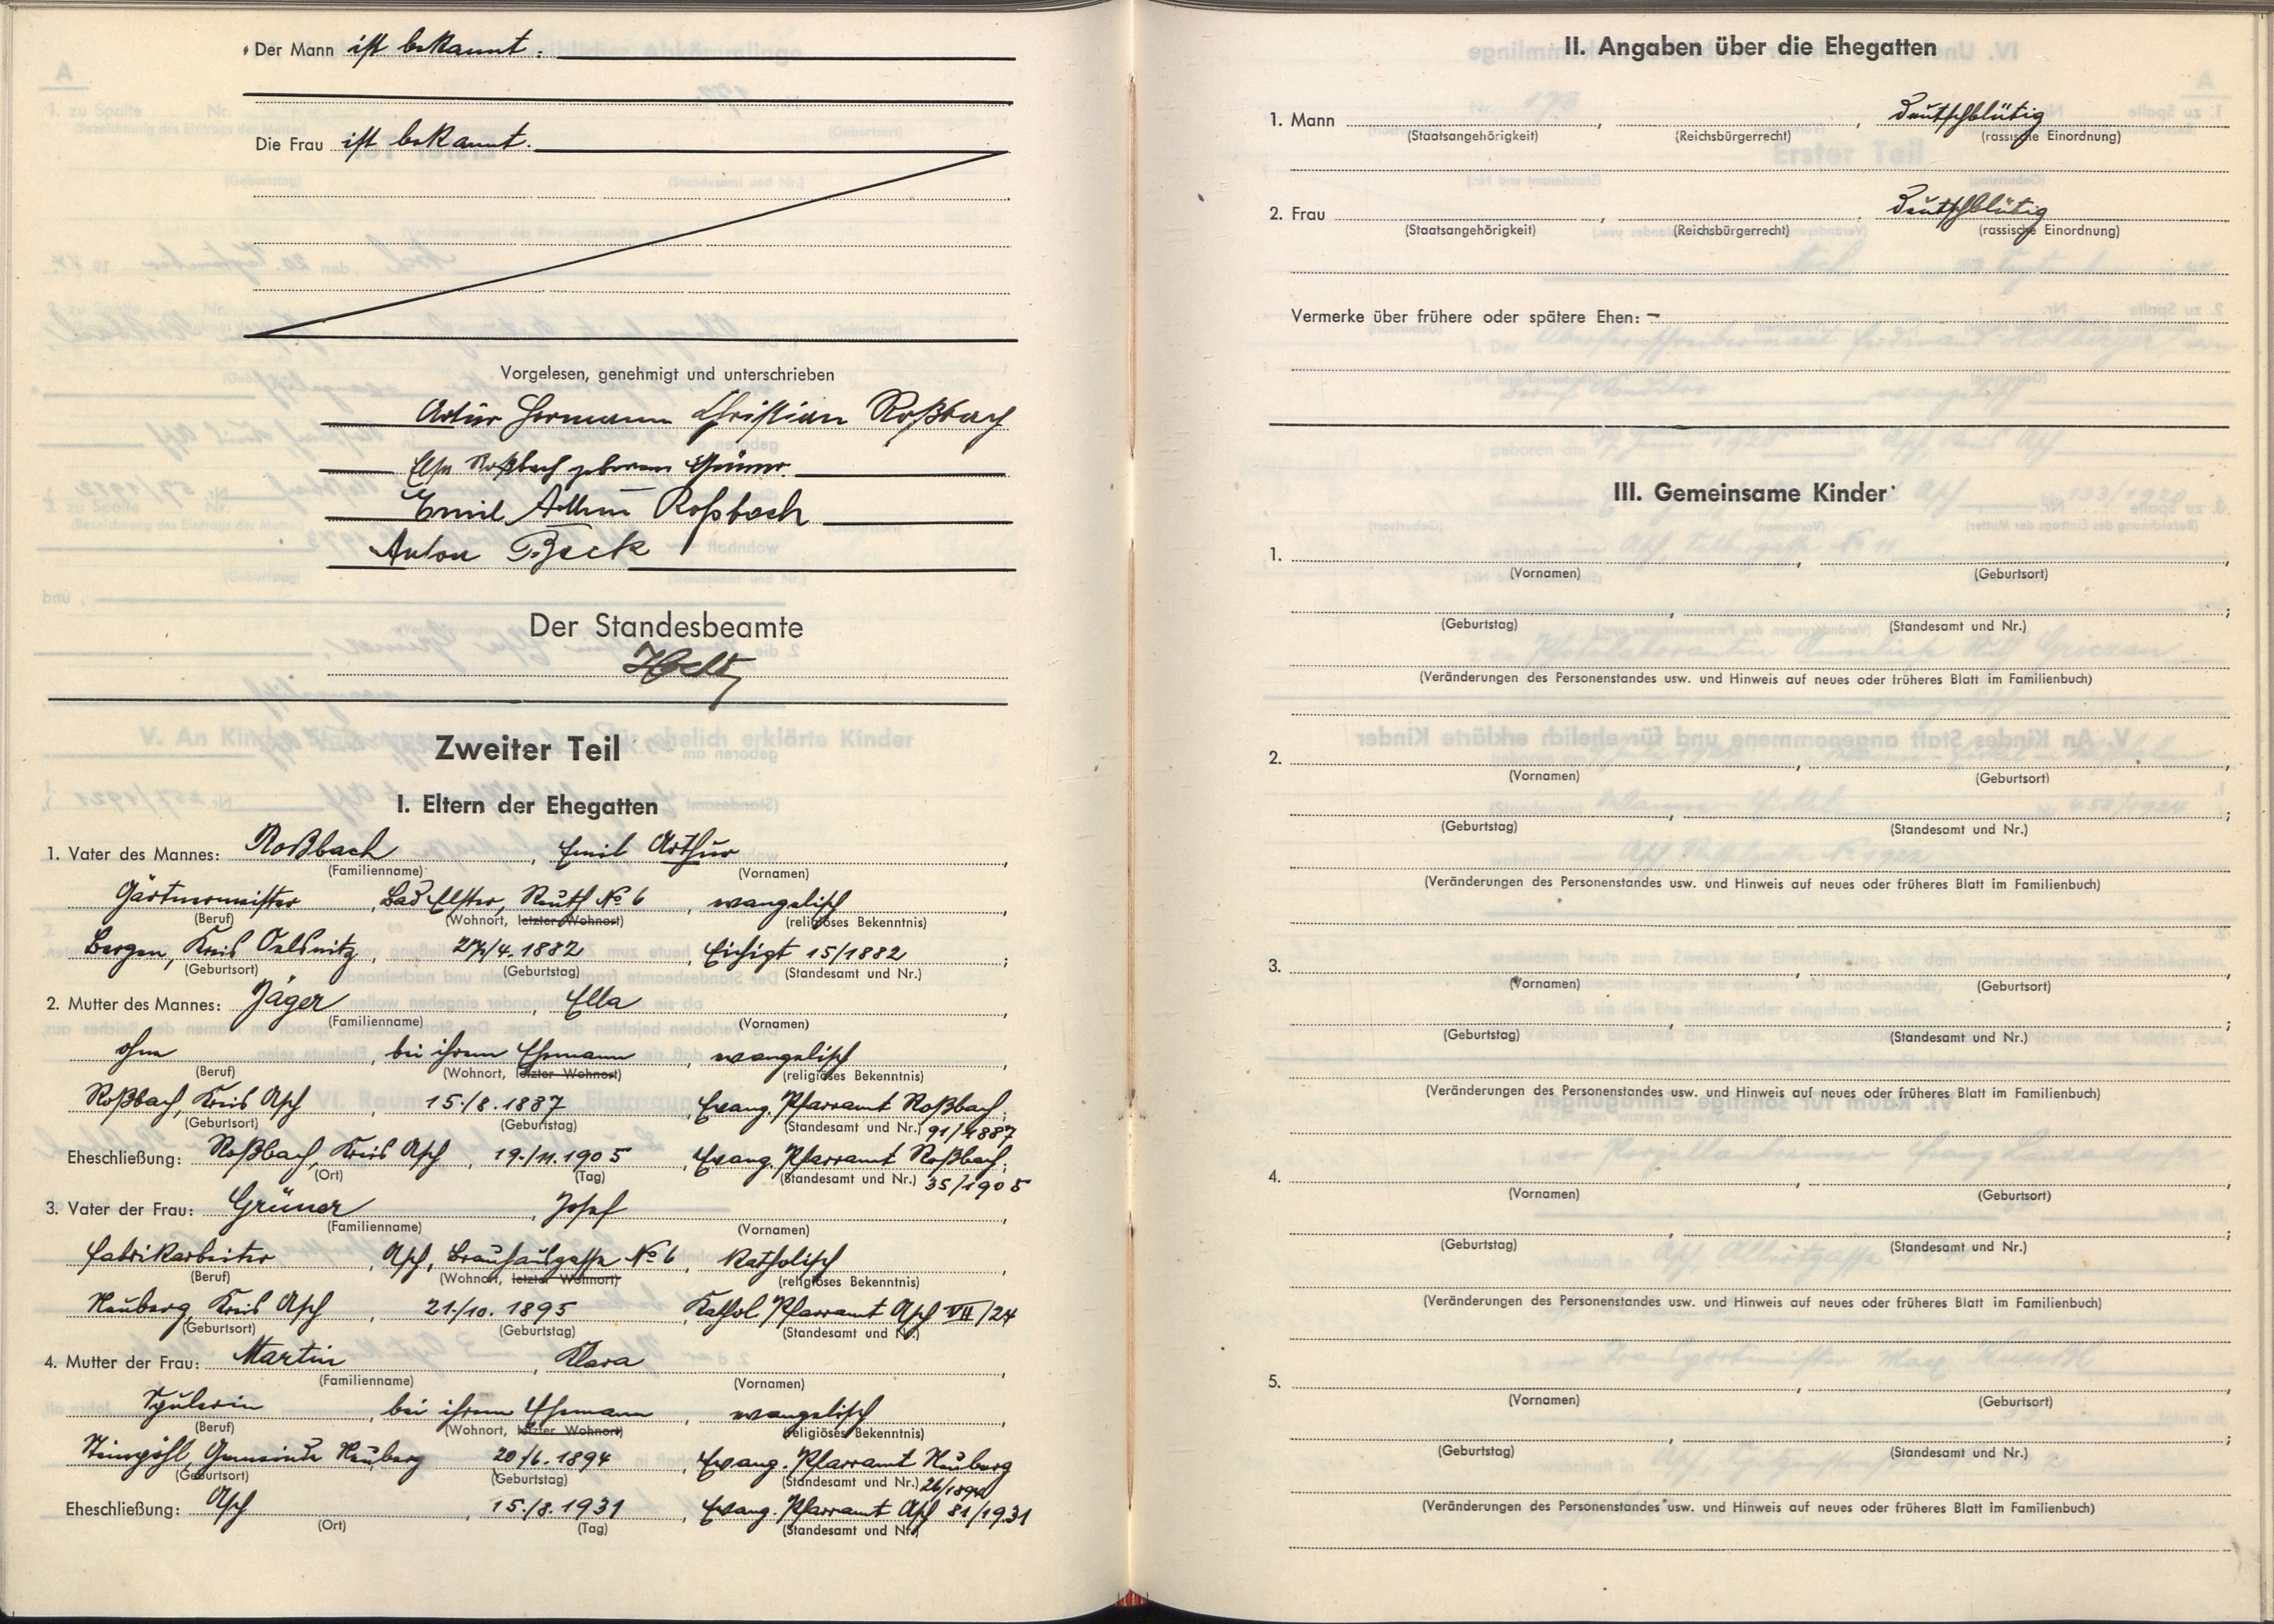 Der Mann ist bekannt.
Die Frau ist bekannt.
Vorgelesen, genehmigt und unterschrieben
Artur Hermann Christian Roßbach
Else Roßbach geborene Grüner.
Emil Arthur Roßbach
Anton Beck
Der Standesbeamte
Zweiter Teil
I. Eltern der Ehegatten
1. Vater des Mannes: Roßbach, Emil Arthur,
(Familienname) (Vornamen)
Gärtnermeister, Bad Elster, Reuth No 6, evangelisch,
(Beruf) (Wohnort, letzter Wohnort) (religiöses Bekenntnis)
Bergen, Kreis Oelsnitz, 27./4. 1882, Eichigt 15/1882;
(Geburtsort) (Geburtstag) (Standesamt und Nr.)
2. Mutter des Mannes: Jäger, Ella,
(Familienname) (Vornamen)
ohne, bei ihrem Ehemann, evangelisch,
(Beruf) (Wohnort, letzter Wohnort) (religiöses Bekenntnis)
Roßbach, Kreis Asch, 15./8. 1887, Evang. Pfarramt Roßbach;
(Geburtsort) (Geburtstag) (Standesamt und Nr.) 91/1887
Eheschließung: Roßbach, Kreis Asch, 19./11. 1905, Evang. Pfarramt Roßbach;
(Ort) (Tag) (Standesamt und Nr.) 35/1905
3. Vater der Frau: Grüner, Josef,
(Familienname) (Vornamen)
Fabrikarbeiter, Asch, Brauhausgasse No 6, katholisch,
(Beruf) (Wohnort, letzter Wohnort) (religiöses Bekenntnis)
Neuberg, Kreis Asch, 21./10. 1895, Kathol. Pfarramt Asch VII/24
(Geburtsort) (Geburtstag) (Standesamt und Nr.)
4. Mutter der Frau: Martin, Klara,
(Familienname) (Vornamen)
Spulerin, bei ihrem Ehemann, evangelisch,
(Beruf) (Wohnort, letzter Wohnort) (religiöses Bekenntnis)
Steinpöhl, Gemeinde Neuberg 20./6. 1894, Evang. Pfarramt Neuberg
(Geburtsort) (Geburtstag) (Standesamt und Nr.) 26/1894
Eheschließung: Asch, 15./8. 1931, Evang. Pfarramt Asch 81/1931
(Ort) (Tag) (Standesamt und Nr.)
II. Angaben über die Ehegatten
1. Mann , , Deutschblütig
(Staatsangehörigkeit) (Reichsbürgerrecht) (rassische Einordnung)
2. Frau , , Deutschblütig
(Staatsangehörigkeit) (Reichsbürgerrecht) (rassische Einordnung)
Vermerke über frühere oder spätere Ehen: –
III. Gemeinsame Kinder
1. , ,
(Vornamen) (Geburtsort)
, ;
(Geburtstag) (Standesamt und Nr.)
(Veränderungen des Personenstandes usw. und Hinweis auf neues oder früheres Blatt im Familienbuch)
2. , ,
(Vornamen) (Geburtsort)
, ;
(Geburtstag) (Standesamt und Nr.)
(Veränderungen des Personenstandes usw. und Hinweis auf neues oder früheres Blatt im Familienbuch)
3. , ,
(Vornamen) (Geburtsort)
, ;
(Geburtstag) (Standesamt und Nr.)
(Veränderungen des Personenstandes usw. und Hinweis auf neues oder früheres Blatt im Familienbuch)
4. , ,
(Vornamen) (Geburtsort)
, ;
(Geburtstag) (Standesamt und Nr.)
(Veränderungen des Personenstandes usw. und Hinweis auf neues oder früheres Blatt im Familienbuch)
5. , ,
(Vornamen) (Geburtsort)
, ;
(Geburtstag) (Standesamt und Nr.)
(Veränderungen des Personenstandes usw. und Hinweis auf neues oder früheres Blatt im Familienbuch)